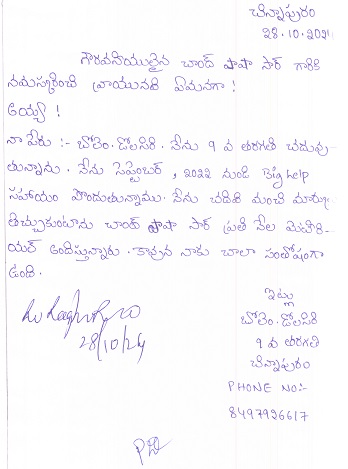 చిన్నాపురం
28.10.2021
గౌరవనీయులైన చాంద్ పాషా సార్ గారికి
నమస్కరించి వ్రాయునది ఏమనగా!
అయ్యా!
నా పేరు :- బోలెం. డోలసిరి. నేను 9 వ తరగతి చదువు-
తున్నాను. నేను సెప్టెంబర్, 2022 నుండి Big help
సహాయం పొందుతున్నాము. నేను చదివి మంచి మార్కు
తెచ్చుకుంటాను చాంద్ పాషా సార్ ప్రతి నెల మెటీరి-
యల్ అందిస్తున్నారు. కావున నాకు చాలా సంతోషంగా
ఉంది.
ఇట్లు
బోలెం. డోలసిరి
9 వ తరగతి
చిన్నాపురం
PHONE NO:-
8497926617
28/10/24